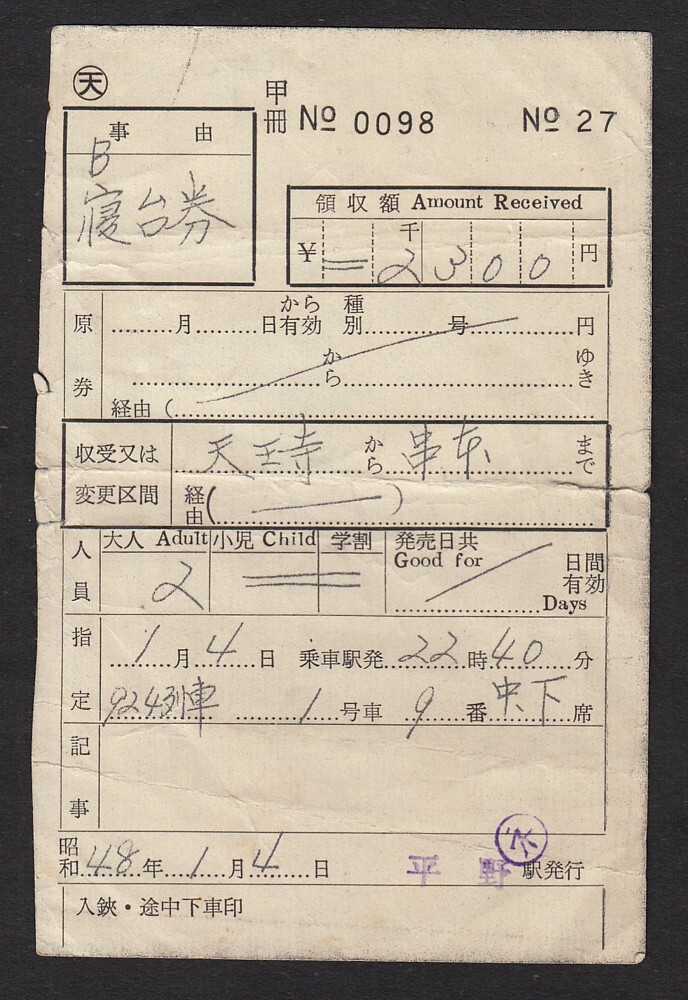 天
甲冊 No 0098 No 27
事由
B
寝台券
領収額 Amount Received
千
¥ 2300 円
原券
月 日から有効 種別 号 円
から ゆき
経由(
収受又は変更区間
天王寺 から 串本 まで
経由( )
人員
大人 Adult 小児 Child 学割
2
発売日共 Good for 日間有効 Days
指定
1月4日 乗車駅発 22時40分
924列車 1号車 9番 中.下席
記事
昭和48年1月4日 平野駅発行
入鋏・途中下車印